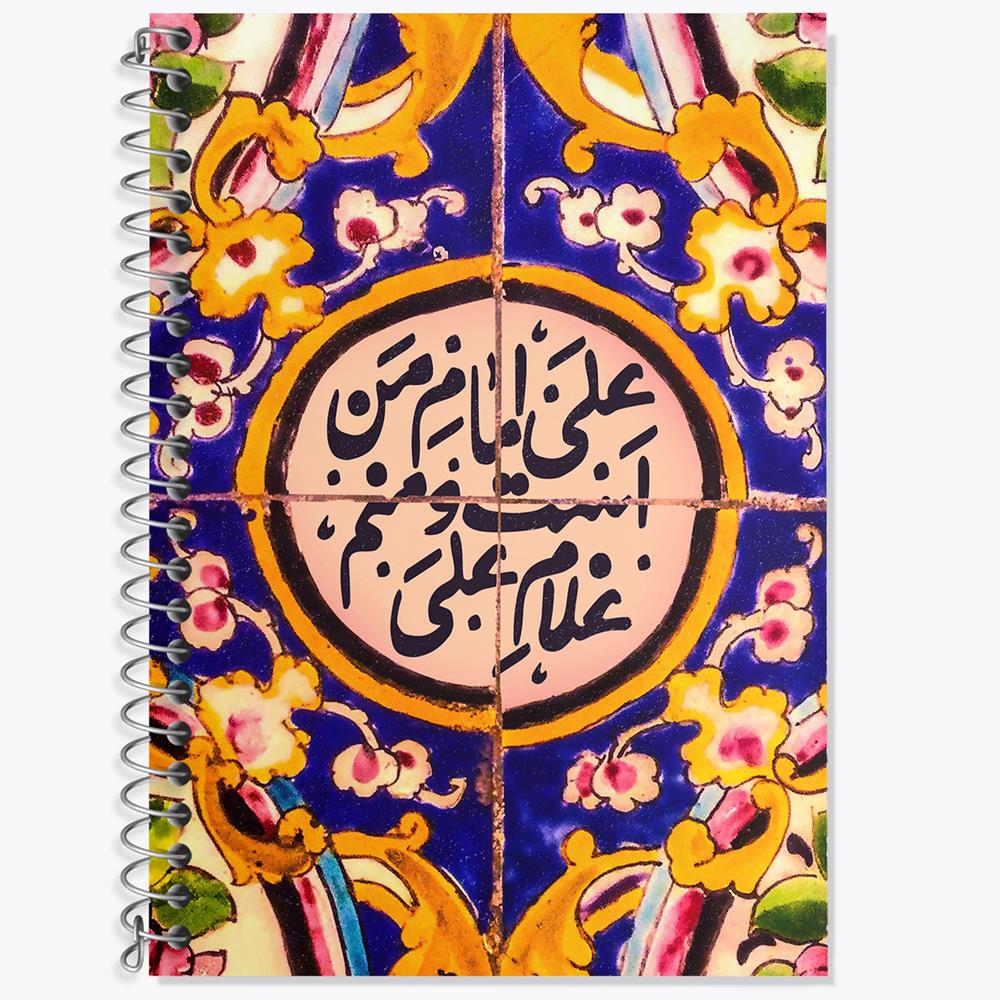 علی امام من
است و منم
غلام علی